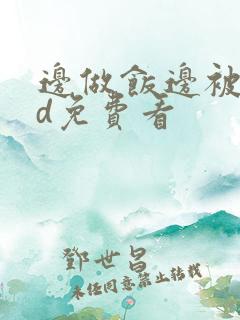 邊做飯邊被
d免費看
鄧世昌
未經同意禁止轉載